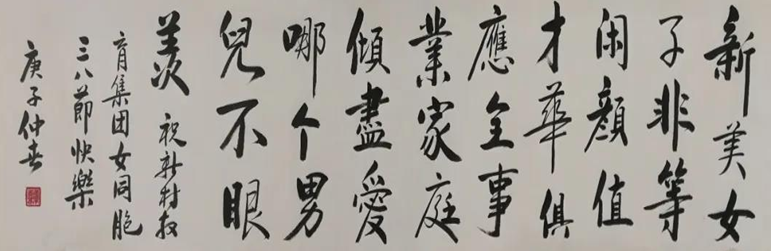 新美女
子非等
闲顏值
才華俱
應全事
業家庭
傾盡愛
哪个男
兒不眼
羡 祝新村教
育集团女同胞
三八節快樂
庚子仲春